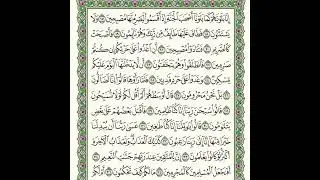 إِنَّا بَلَوْنَٰهُمْ كَمَا بَلَوْنَآ أَصْحَٰبَ ٱلْجَنَّةِ إِذْ أَقْسَمُوا۟ لَيَصْرِمُنَّهَا مُصْبِحِينَ ١٧ وَلَا
يَسْتَثْنُونَ ١٨ فَطَافَ عَلَيْهَا طَآئِفٌ مِّن رَّبِّكَ وَهُمْ نَآئِمُونَ ١٩ فَأَصْبَحَتْ
كَٱلصَّرِيمِ ٢٠ فَتَنَادَوْا۟ مُصْبِحِينَ ٢١ أَنِ ٱغْدُوا۟ عَلَىٰ حَرْثِكُمْ إِن كُنتُمْ
صَٰرِمِينَ ٢٢ فَٱنطَلَقُوا۟ وَهُمْ يَتَخَٰفَتُونَ ٢٣ أَن لَّا يَدْخُلَنَّهَا ٱلْيَوْمَ عَلَيْكُم
مِّسْكِينٌ ٢٤ وَغَدَوْا۟ عَلَىٰ حَرْدٍ قَٰدِرِينَ ٢٥ فَلَمَّا رَأَوْهَا قَالُوٓا۟ إِنَّا لَضَآلُّونَ
٢٦ بَلْ نَحْنُ مَحْرُومُونَ ٢٧ قَالَ أَوْسَطُهُمْ أَلَمْ أَقُل لَّكُمْ لَوْلَا تُسَبِّحُونَ
٢٨ قَالُوا۟ سُبْحَٰنَ رَبِّنَآ إِنَّا كُنَّا ظَٰلِمِينَ ٢٩ فَأَقْبَلَ بَعْضُهُمْ عَلَىٰ بَعْضٍ
يَتَلَٰوَمُونَ ٣٠ قَالُوا۟ يَٰوَيْلَنَآ إِنَّا كُنَّا طَٰغِينَ ٣١ عَسَىٰ رَبُّنَآ أَن يُبْدِلَنَا
خَيْرًا مِّنْهَآ إِنَّآ إِلَىٰ رَبِّنَا رَٰغِبُونَ ٣٢ كَذَٰلِكَ ٱلْعَذَابُ وَلَعَذَابُ ٱلْءَاخِرَةِ
أَكْبَرُ لَوْ كَانُوا۟ يَعْلَمُونَ ٣٣ إِنَّ لِلْمُتَّقِينَ عِندَ رَبِّهِمْ جَنَّٰتِ ٱلنَّعِيمِ ٣٤
أَفَنَجْعَلُ ٱلْمُسْلِمِينَ كَٱلْمُجْرِمِينَ ٣٥ مَا لَكُمْ كَيْفَ تَحْكُمُونَ ٣٦